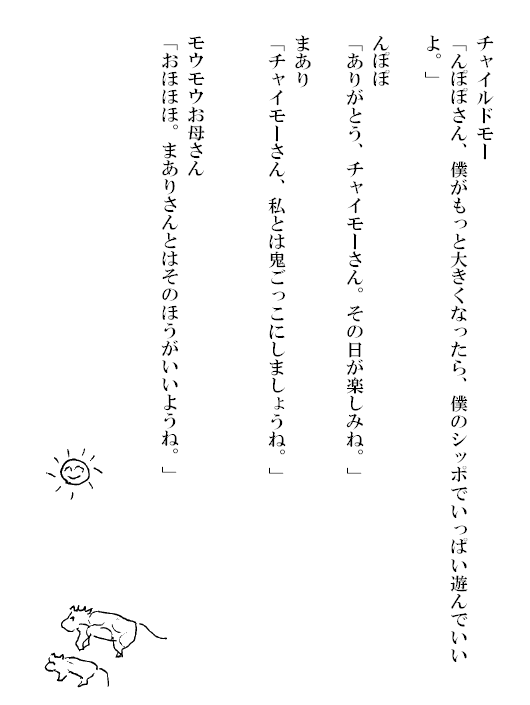 チャイルドモー
「んぽぽさん、僕がもっと大きくなったら、僕のシッポでいっぱい遊んでいい
よ。」
んぽぽ
「ありがとう、チャイモーさん。その日が楽しみね。」
まあり
「チャイモーさん、私とは鬼ごっこにしましょうね。」
モウモウお母さん
「おほほほ。まありさんとはそのほうがいいようね。」